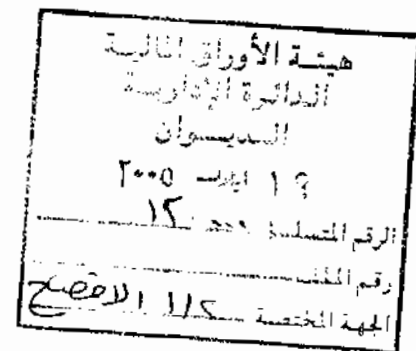 هيئة الأوراق المالية
الدائرة الإدارية
الديوان
١ ايلول ٢٠٠٥
الرقم المتسلسل
رقم الملف
الجهة المختصة الافصاح